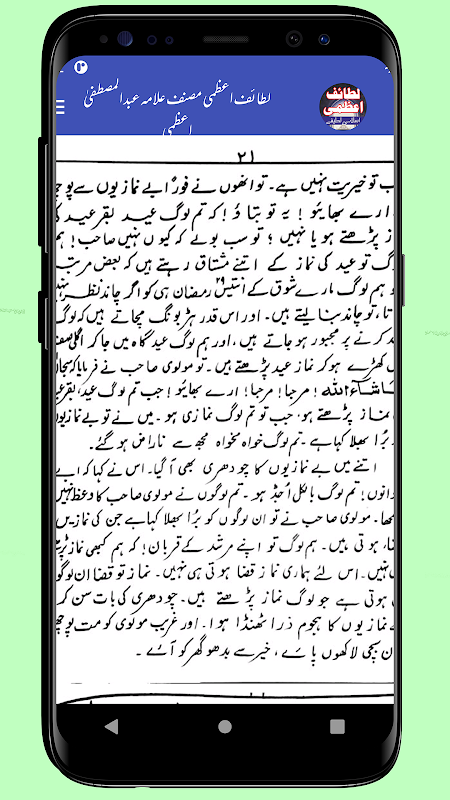 لطائف اعظمی مصنف علامہ عبدالمصطفیٰ
اعظمی
لطائف
اعظمی
۲۱
تو خیریت نہیں ہے۔ تو انھوں نے فوراً بے نمازیوں سے
ارے بھائیو! یہ تو بتاؤ! کہ تم لوگ عید بقرعید
پڑھتے ہو یا نہیں؟ تو سب بولے کہ کیوں نہیں صاحب! ہم
تو عید کی نماز کے اتنے مشتاق رہتے ہیں کہ بعض مرتبہ
ہم لوگ مارے شوق کے انتیس ۲۹ رمضان ہی کو اگر چاند نظر نہیں
تا، تو چاند بنا لیتے ہیں۔ اور اس قدر ہڑبونگ مچاتے ہیں کہ لوگ
کرنے پر مجبور ہو جاتے ہیں، اور ہم لوگ عیدگاہ میں جا کر اگلی صف
کھڑے ہو کر نماز عید پڑھتے ہیں۔ تو مولوی صاحب نے فرمایا کہ سبحان
ماشاءاللہ! مرحبا! مرحبا! ارے بھائیو! جب تم لوگ عید، بقرعید
نماز پڑھتے ہو، جب تو تم لوگ نمازی ہو۔ میں نے تو بے نمازیوں
برا بھلا کہا ہے۔ تم لوگ خواہ مخواہ مجھ سے ناراض ہو گئے۔
اتنے میں بے نمازیوں کا چودھری بھی آ گیا۔ اس نے کہا کہ ابے
دانوں! تم لوگ بالکل اُجڈ ہو۔ تم لوگوں نے مولوی صاحب کا وعظ نہیں
مولوی صاحب نے تو ان لوگوں کو برا بھلا کہا ہے جن کی نمازیں
ہوتی ہیں۔ ہم لوگ تو اپنے مرشد کے قربان! کہ ہم کبھی نماز پڑھتے
نہیں۔ اس لئے ہماری نماز قضا ہوتی ہی نہیں۔ نماز تو قضا ان لوگوں
ہوتی ہے جو لوگ نماز پڑھتے ہیں۔ چودھری کی بات سن کر
نمازیوں کا ہجوم ذرا ٹھنڈا ہوا۔ اور غریب مولوی کو مت پوچھ
بچی لاکھوں پائے، خیر سے بدھو گھر کو آئے۔